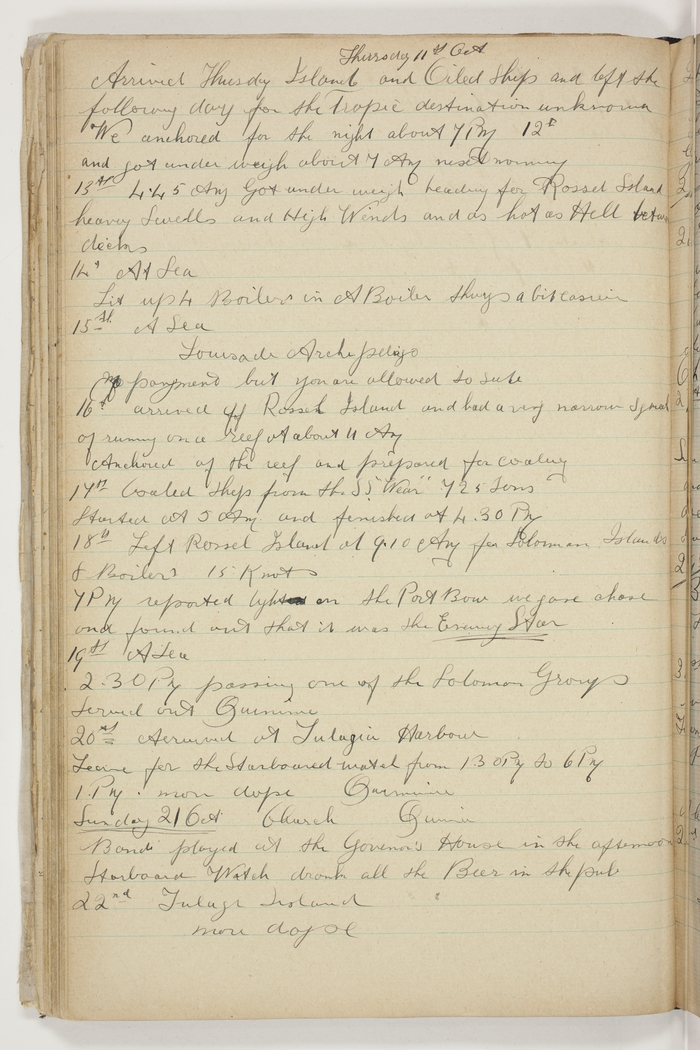 Thursday 11th Oct
Arrived Thursdy Island and Oiled Ship and left the
following day for the Tropic destination unknown
We anchored for the night about 7 PM 12th
and got under weigh about 7 AM next morning
13th 4.45 AM Got under weigh heading for Rossel Island
heavy Swells and High Winds and as hot as Hell
decks
14th At Sea
Lit up 4 Boilers in A Boiler thngs a bit easier
15th A Sea
Louisade Archepeligo
No payment but you are allowed to
16th arrived off Rossel Island and had a very narrow
of runing on a reef at about 11 AM
Anchored of the reef and prepared for coaling
17th Coaled Ship from the SS "Wear" 725 Tons
Started at 5 AM and finished at 4.30 PM
18th Left Rossel Island at 9.10 AM for Soloman Islands
8 Boilers 15 Knots
7 PM reported light on the Port Bow we gave chase
and found out that it was the Evening Star
19th A Sea
2.30 PM passing one of the Solomon Groups
Served out Quinine
20th Aerrived at Tulagia Harbour
Leave for the Starboared watch from 1 30 PM to 6 PM
1. PM. more dope Quinine
Sunday 21 Oct Church
Band played at the Governor's House in the afternoon
Starboard Watch drank all the Beer in the pub
22nd Tulagi Island
more dope